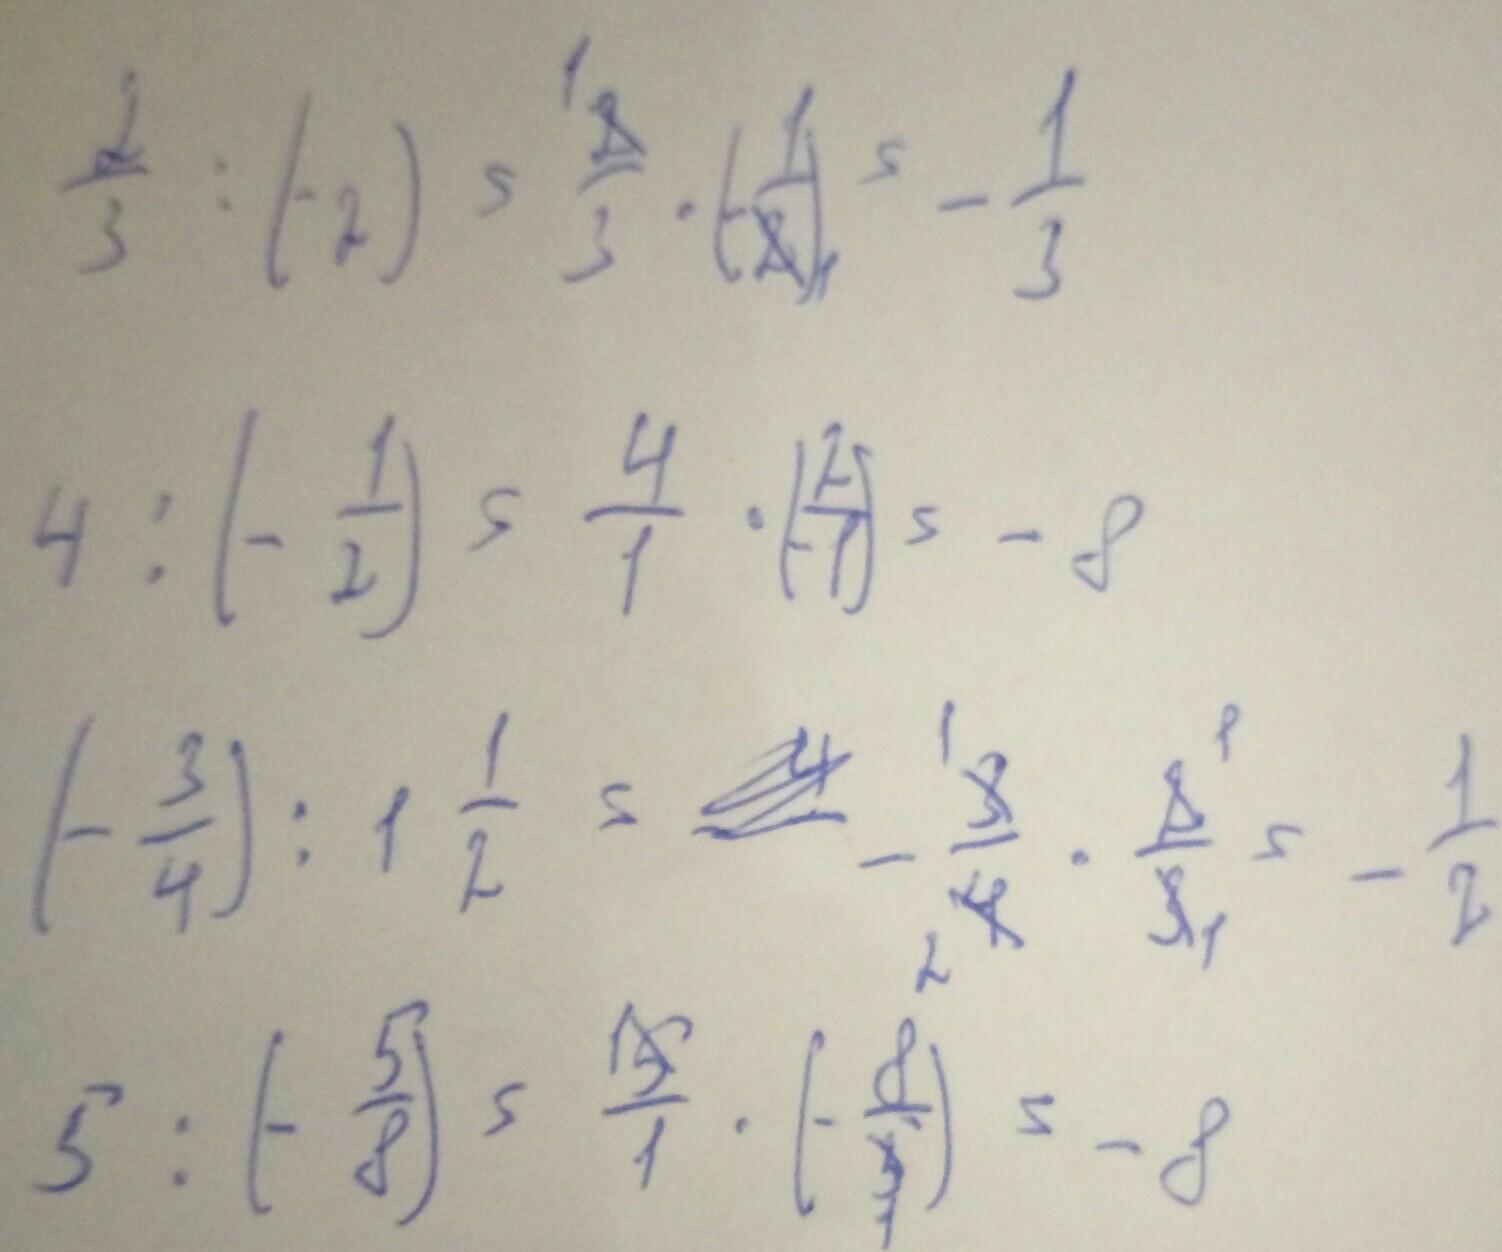 2/3 : (-2) = 2/3 · (-1/2) = -1/3
4 : (-1/2) = 4/1 · (-2/1) = -8
(-3/4) : 1 1/2 = -3/4 · 2/3 = -1/2
5 : (-5/8) = 5/1 · (-8/5) = -8